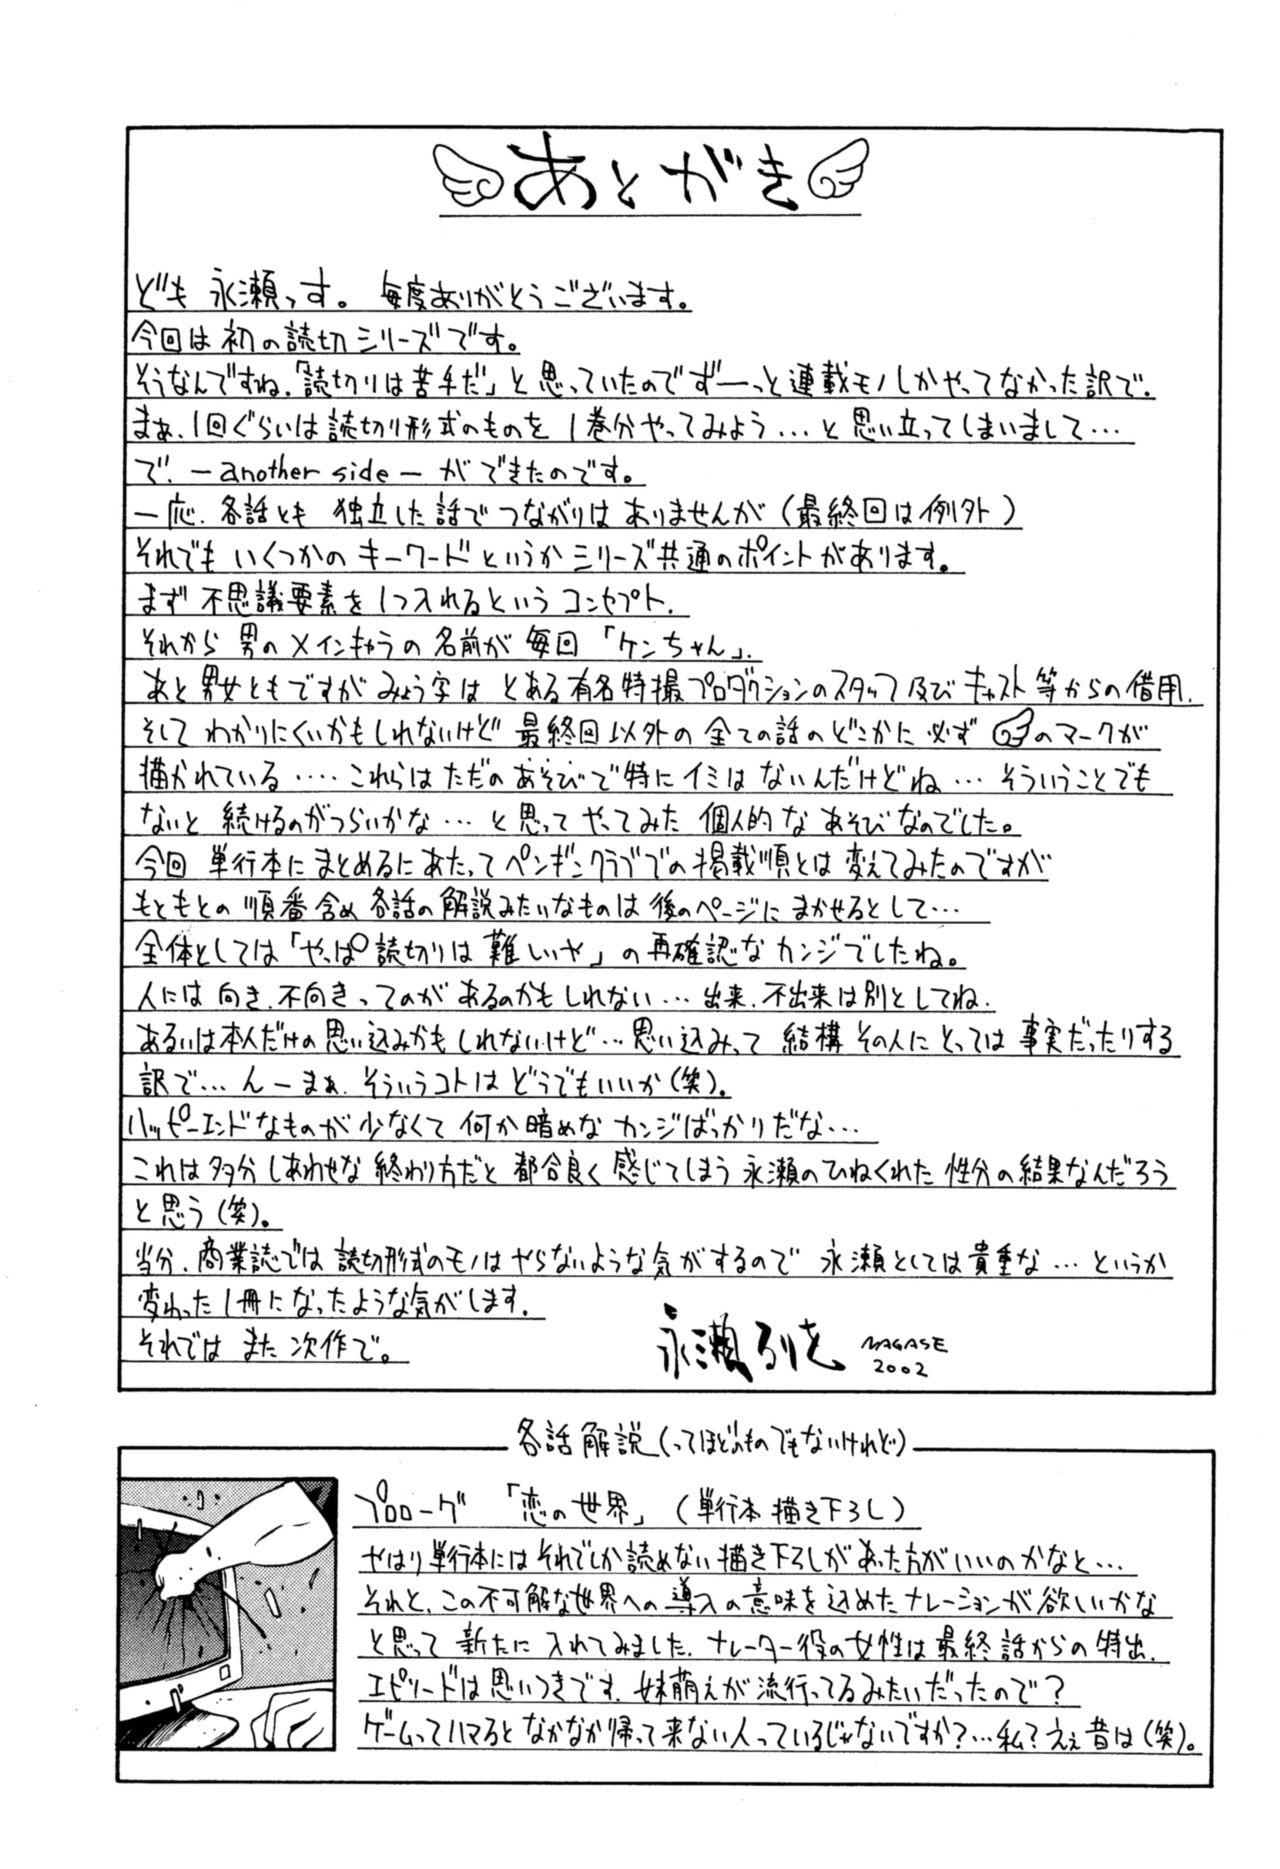 あとがき
ども 永瀬っす。 毎度ありがとうございます。
今回は初の読切シリーズです。
そうなんですね、「読切りは苦手だ」と思っていたのでずーっと連載モノしかやってなかった訳で。
まぁ、1回ぐらいは読切り形式のものを1巻分やってみよう…と思い立ってしまいまして…
で、－another side－ができたのです。
一応、各話とも 独立した話でつながりは ありませんが（最終回は例外）
それでも いくつかの キーワードというかシリーズ共通のポイントがあります。
まず 不思議要素を1つ入れるという コンセプト、
それから 男のメインキャラの名前が 毎回「ケンちゃん」、
あと男女ともですが みょう字は とある有名特撮プロダクションのスタッフ及び キャスト等からの借用、
そして わかりにくいかもしれないけど 最終回以外の 全ての話のどこかに 必ず のマークが
描かれている ‥‥ これらは ただの あそびで特にイミは ないんだけどね … そういうことでも
ないと 続けるのがつらいかな … と思って やってみた 個人的な あそびなのでした。
今回 単行本にまとめるにあたって ペンギンクラブでの掲載順とは 変えてみたのですが
もともとの 順番含め 各話の解説みたいなものは 後のページに まかせるとして…
全体としては「やっぱ読切りは難しいや」の再確認なカンジでしたね。
人には 向き、不向きってのが あるのかもしれない… 出来、不出来は別としてね、
あるいは本人だけの思い込みかもしれないけど…思い込みって 結構 その人にとっては 事実だったりする
訳で… んーまぁ、そういうコトはどうでもいいか（笑）。
ハッピーエンドなものが少なくて 何か暗めな カンジばっかりだな…
これは多分 しあわせな 終わり方だと 都合良く感じてしまう 永瀬のひねくれた 性分の結果なんだろう
と思う（笑）。
当分、商業誌では 読切形式のモノはやらないような気がするので 永瀬としては貴重な … というか
変わった1冊になったような気がします、
それでは また 次作で。
永瀬るりを NAGASE 2002
各話解説（ってほどのものでもないけれど）
プロローグ 「恋の世界」（単行本描き下ろし）
やはり単行本には それでしか読めない描き下ろしがあった方がいいのかなと…
それと、この不可解な世界への導入の意味を込めたナレーションが欲しいかな
と思って 新たに 入れてみました、ナレーター役の女性は最終話からの特出、
エピソードは思いつきです、妹萌えが流行ってるみたいだったので？
ゲームってハマると なかなか帰って来ない人っているじゃないですか？…私？えぇ昔は（笑）。